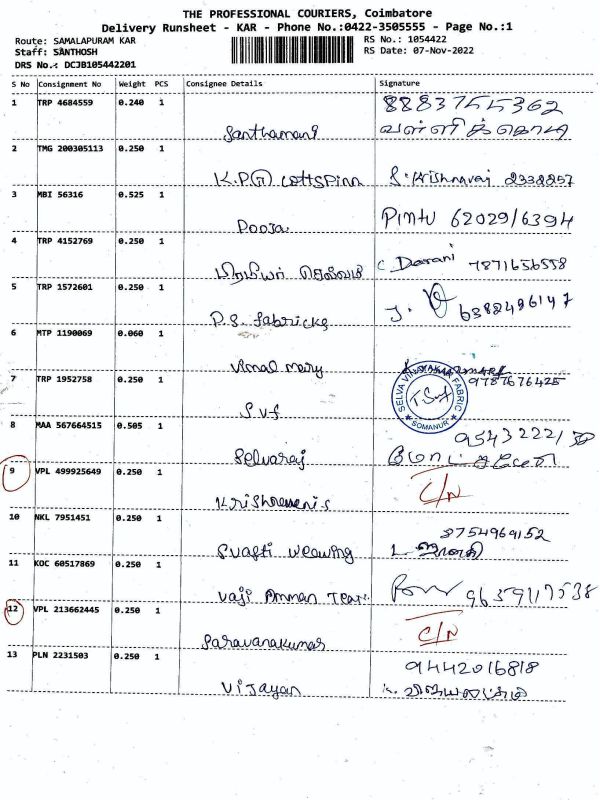 THE PROFESSIONAL COURIERS, Coimbatore
Delivery Runsheet - KAR - Phone No.:0422-3505555 - Page No.:1
Route: SAMALAPURAM KAR
RS No.: 1054422
Staff: SANTHOSH
RS Date: 07-Nov-2022
DRS No.: DCJB105442201
S No Consignment No Weight PCS Consignee Details Signature
1 TRP 4684559 0.240 1 8883755362
Santhamani வள்ளிக்கொடி
2 TMG 200305113 0.250 1
K.P.G cottspinn S. Krishnaraj 2338257
3 MBI 56316 0.525 1
Pooja Pintu 62029/6394
4 TRP 4152769 0.250 1
பிரிமியர் செல்வம் C Darani 7871656558
5 TRP 1572601 0.250 1
P.S. fabricks J. 6382496147
6 MTP 1190069 0.060 1
Vimal mary
7 TRP 1952758 0.250 1 9787676425
S.V.F SELVA FABRIC SOMANUR
8 MAA 567664515 0.505 1 9543222130
Selvaraj
9 VPL 499925649 0.250 1 C/N
10 NKL 7951451 0.250 1 8754969152
Svasti weaving
11 KOC 60517869 0.250 1
Vaji Amman Tex 9659117538
12 VPL 213662445 0.250 1 C/N
Saravanakumar
13 PLN 2231503 0.250 1 9442016818
Vijayan